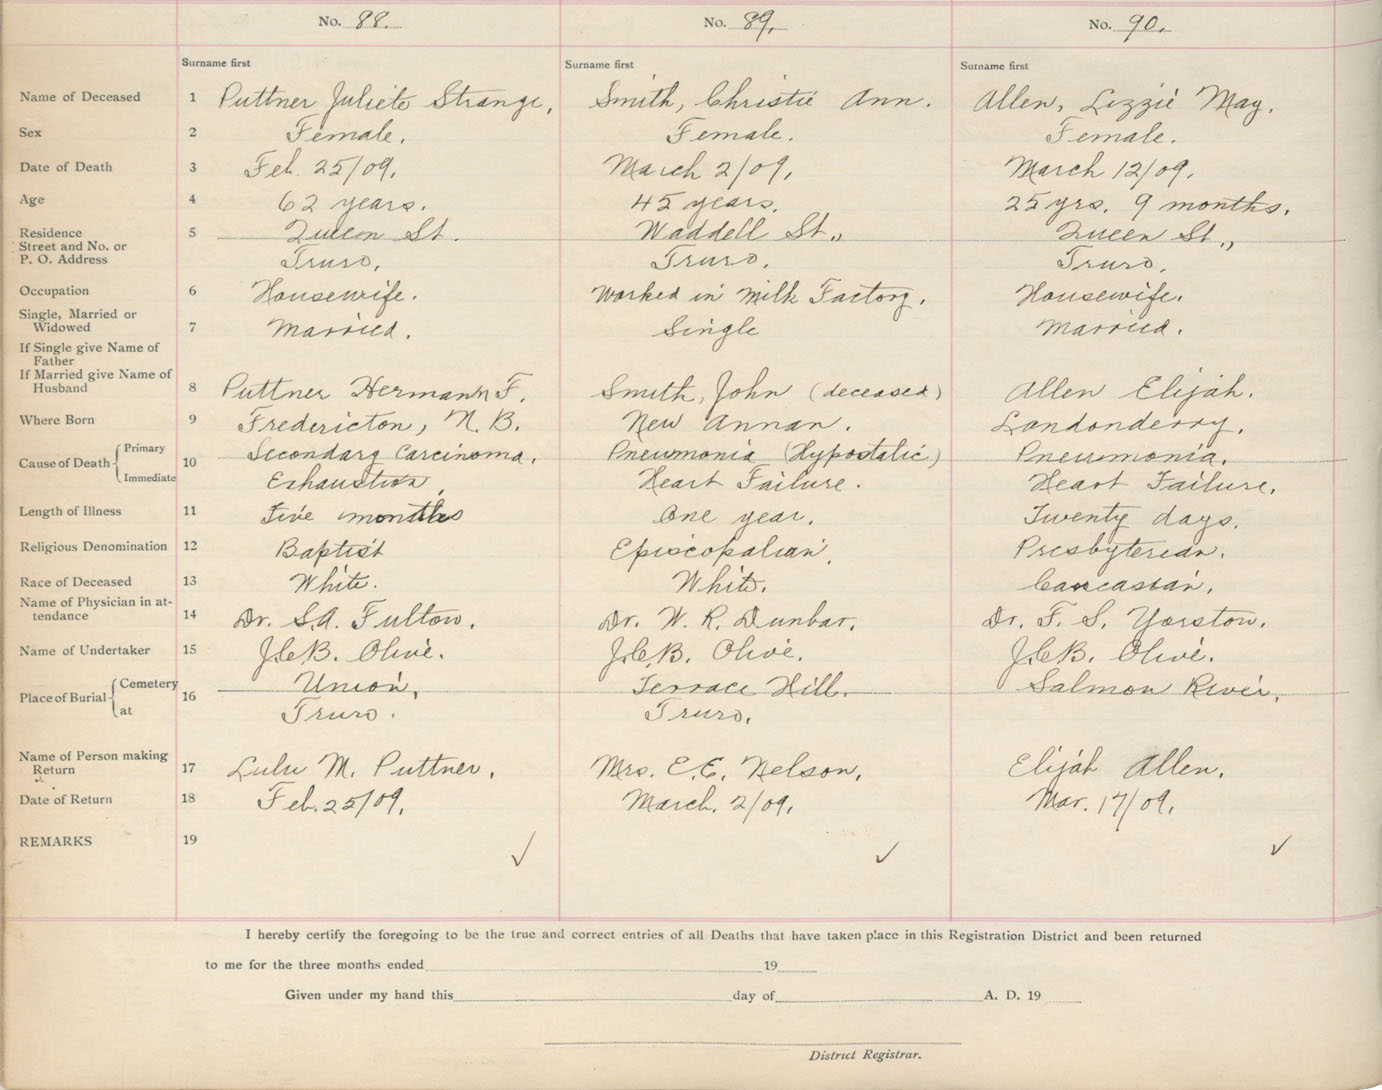 No. 88. No. 89. No. 90.
Surname first Surname first Surname first
Name of Deceased 1 Puttner Juliete Strange, Smith, Christie Ann. Allen, Lizzie May.
Sex 2 Female. Female. Female.
Date of Death 3 Feb. 25/09. March 2/09. March 12/09.
Age 4 62 years. 45 years. 25 yrs. 9 months.
Residence 5 Queen St. Waddell St., Queen St.,
Street and No. or
P. O. Address Truro. Truro. Truro.
Occupation 6 Housewife. Worked in Milk Factory. Housewife.
Single, Married or
Widowed 7 Married. Single Married.
If Single give Name of
Father
If Married give Name of
Husband 8 Puttner Hermann F. Smith, John (deceased) Allen Elijah.
Where Born 9 Fredericton, N. B. New Annan. Londonderry.
Cause of Death Primary 10 Secondary Carcinoma. Pneumonia (Hypostatic) Pneumonia.
Immediate Exhaustion. Heart Failure. Heart Failure.
Length of Illness 11 Five months One year. Twenty days.
Religious Denomination 12 Baptist Episcopalian. Presbyterian.
Race of Deceased 13 White. White. Caucasian.
Name of Physician in at-
tendance 14 Dr. S.A. Fulton. Dr. W. R. Dunbar. Dr. F. S. Yorston.
Name of Undertaker 15 J.C.B. Olive. J.C.B. Olive. J.C.B. Olive.
Place of Burial Cemetery 16 Union, Terrace Hill. Salmon River.
at Truro. Truro.
Name of Person making
Return 17 Lulu M. Puttner. Mrs. E.E. Nelson. Elijah Allen.
Date of Return 18 Feb. 25/09. March. 2/09. Mar. 17/09.
REMARKS 19 ✓ ✓ ✓
I hereby certify the foregoing to be the true and correct entries of all Deaths that have taken place in this Registration District and been returned
to me for the three months ended 19
Given under my hand this day of A. D. 19
District Registrar.